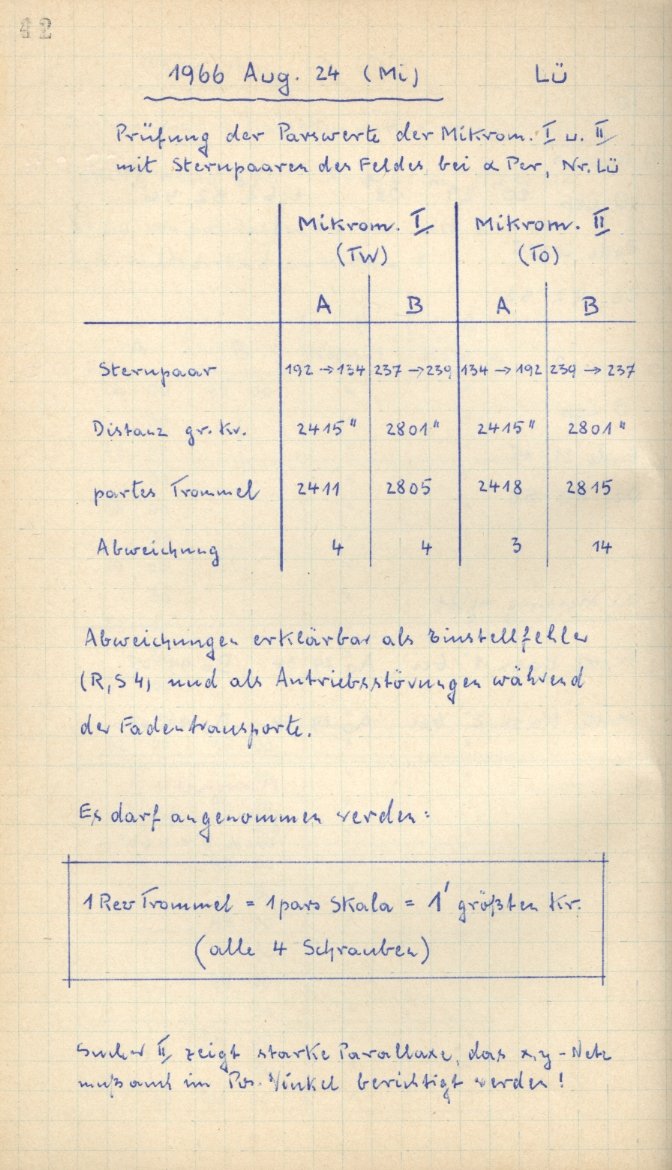 42
1966 Aug. 24 (Mi) Lü
Prüfung der Parswerte der Mikrom. I u. II
mit Sternpaaren des Feldes bei α Per, Nr. Lü
Mikrom. I Mikrom. II
(TW) (TO)
A B A B
Sternpaar 192 → 134 237 → 239 134 → 192 239 → 237
Distanz gr. Kr. 2415" 2801" 2415" 2801"
partes Trommel 2411 2805 2418 2815
Abweichung 4 4 3 14
Abweichungen erklärbar als Einstellfehler
und als Antriebsstörungen während
der Fadentransporte.
Es darf angenommen werden:
1 Rev Trommel = 1 pars Skala = 1' größten Kr.
(alle 4 Schrauben)
Sucher II zeigt starke Parallaxe, das x,y-Netz
muß auch im Pos. Winkel berichtigt werden!